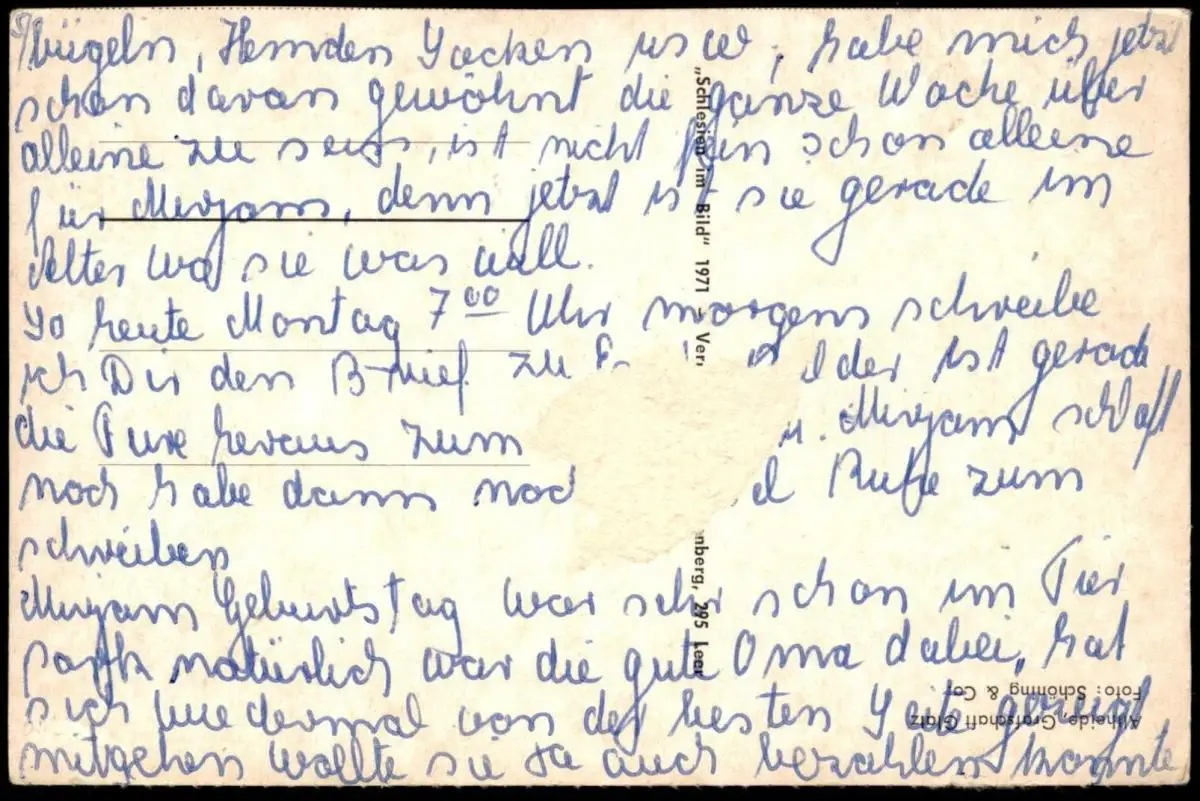 bügeln, Hemden Jacken usw, habe mich jetzt
schon daran gewöhnt die ganze Woche über
alleine zu sein, ist nicht fein schon alleine
für Mirjam, denn jetzt ist sie gerade im
Alter wo sie was will.
So heute Montag 7 00 Uhr morgens schreibe
ich Dir den Brief zu der ist gerade
die Türe heraus zum u. Mirjam schläft
noch habe dann noc Ruhe zum
schreiben
Mirjam Geburtstag war sehr schön im Tier
park natürlich war die gute Oma dabei, hat
sich wiedermal von der besten Seite gezeigt
mitgehen wollte sie ja auch bezahlen konnte
„Schlesien im Bild“ 1971 - Ver
nberg, 295 Leer
Altheide, Grafschaft Glatz
Foto: Schöning & Co